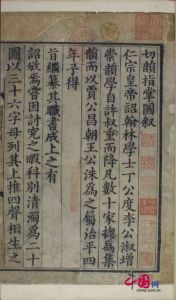 切韻指掌圖叙
仁宗皇帝詔翰林學士丁公度李公淑增
崇韻學自許叔重而降凡數十家總為集
韻而以賈公昌朝王公洙為之屬治平四
年予得
旨繼纂其職書成上之有
詔頒焉嘗因討究之暇科別清濁為二十
圖以三十六字母列其上推四聲相生之
中国网